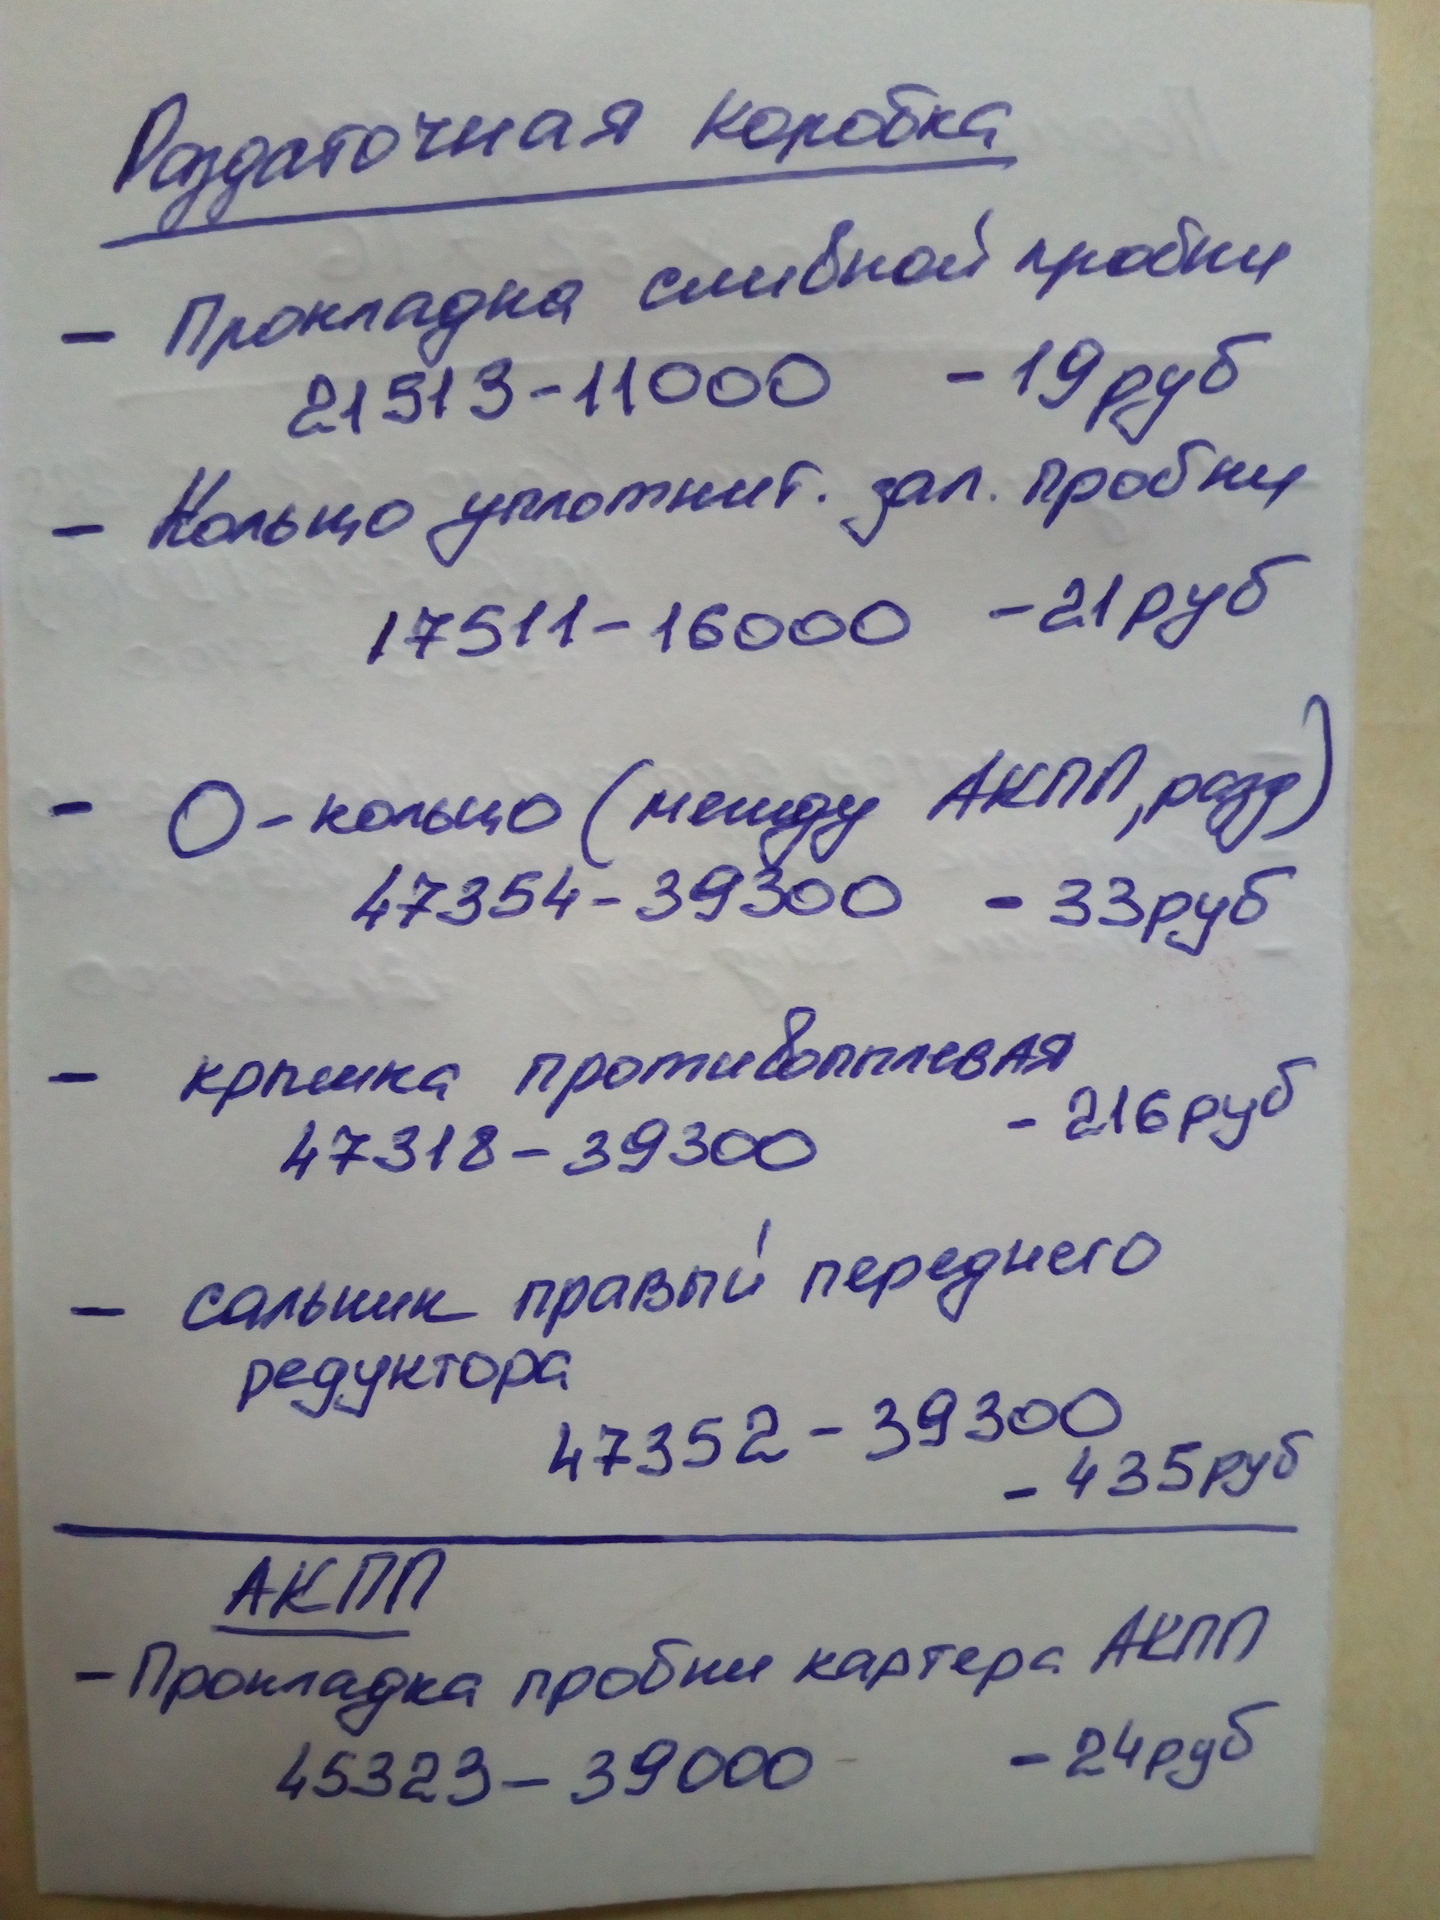 Раздаточная коробка
- Прокладка сливной пробки
21513-11000 - 19руб
- Кольцо уплотнит. зал. пробки
17511-16000 - 21руб
- О-кольцо (между АКПП, разд)
47354-39300 - 33руб
- крышка противопылевая
47318-39300 - 216руб
- сальник правый переднего
редуктора
47352-39300
- 435руб
АКПП
- Прокладка пробки картера АКПП
45323-39000 - 24руб